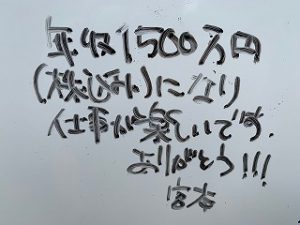 年収1500万円
(税込み)になり
仕事が楽しいです.
ありがとう!!!
宮本